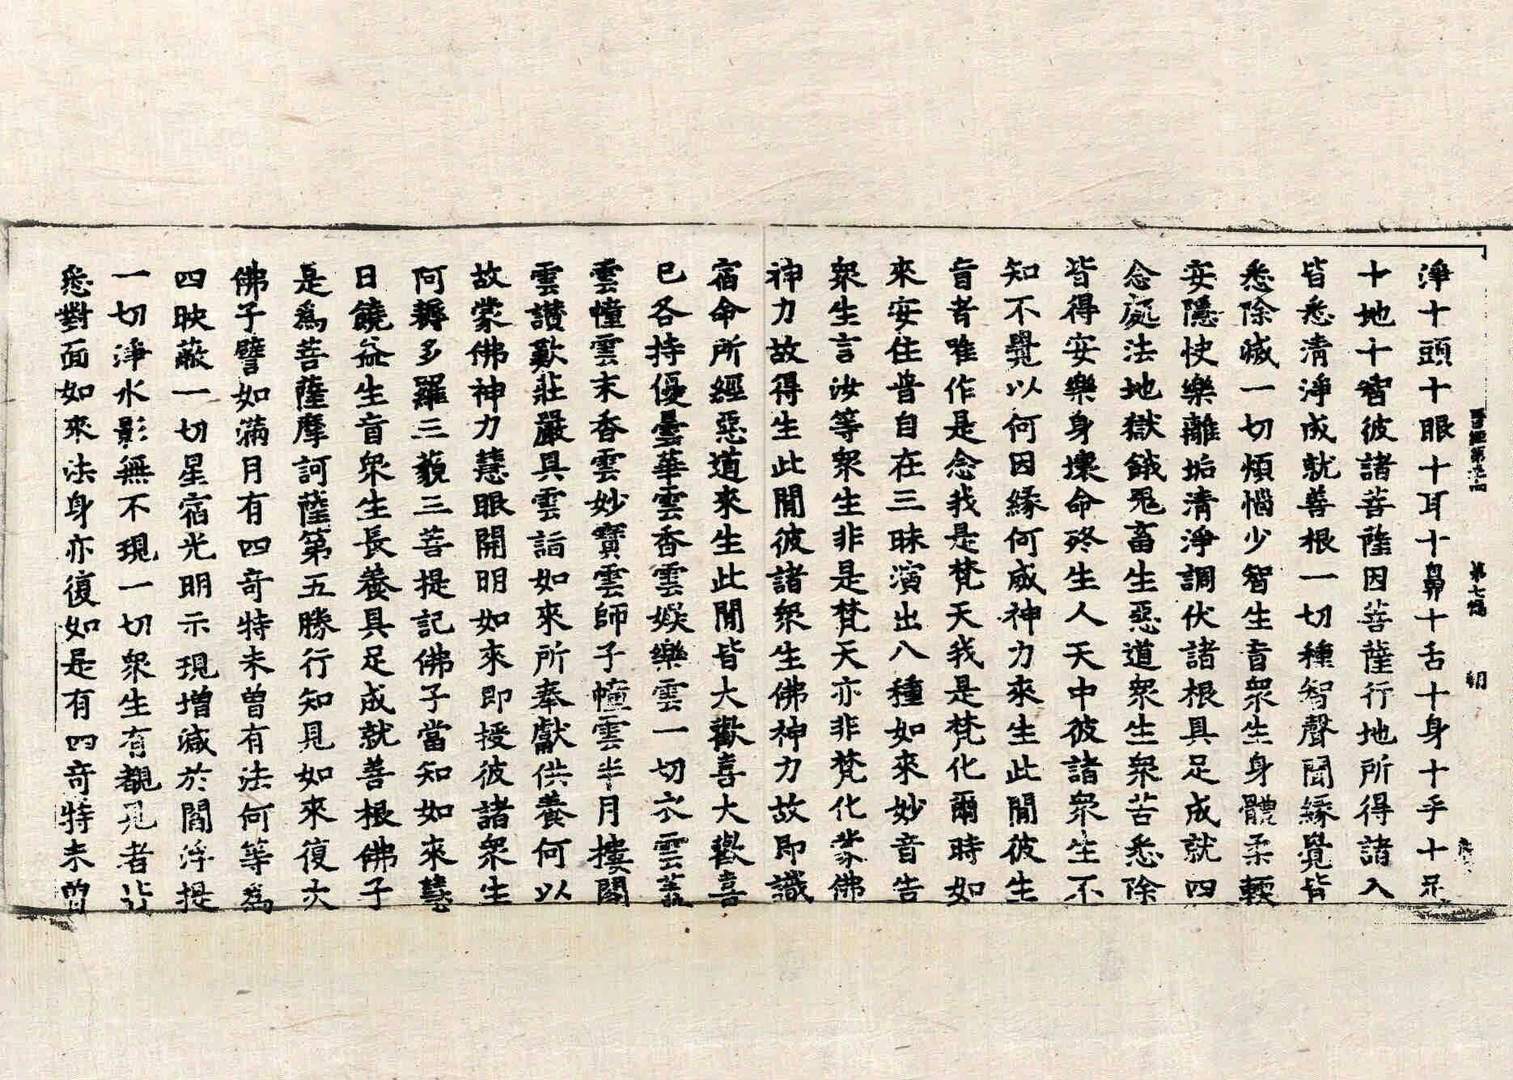 淨十頭十眼十耳十鼻十舌十身十手十足
十地十智彼諸菩薩因菩薩行地所得諸入
皆悉清淨成就善根一切種智聲聞緣覺皆
悉除滅一切煩惱少智生盲衆生身體柔輭
安隱快樂離垢清淨調伏諸根具足成就四
念處法地獄餓鬼畜生惡道衆生衆苦悉除
皆得安樂身壞命終生人天中彼諸衆生不
知不覺以何因緣何威神力來生此間彼生
盲者唯作是念我是梵天我是梵化爾時如
來安住普自在三昧演出八種如來妙音告
衆生言汝等衆生非是梵天亦非梵化蒙佛
神力故得生此間彼諸衆生佛神力故即識
宿命所經惡道來生此間皆大歡喜大歡喜
已各持優曇華雲香雲娛樂雲一切衣雲蓋
雲幢雲末香雲妙寶雲師子幢雲半月樓閣
雲讃歎莊嚴具雲詣如來所奉獻供養何以
故蒙佛神力慧眼開明如來即授彼諸衆生
阿耨多羅三藐三菩提記佛子當知如來慧
日饒益生盲衆生長養具足成就善根佛子
是爲菩薩摩訶薩第五勝行知見如來復次
佛子譬如滿月有四奇特未曾有法何等爲
四映蔽一切星宿光明示現增減於閻浮提
一切淨水影無不現一切衆生有覩見者皆
悉對面如來法身亦復如是有四奇特未曾